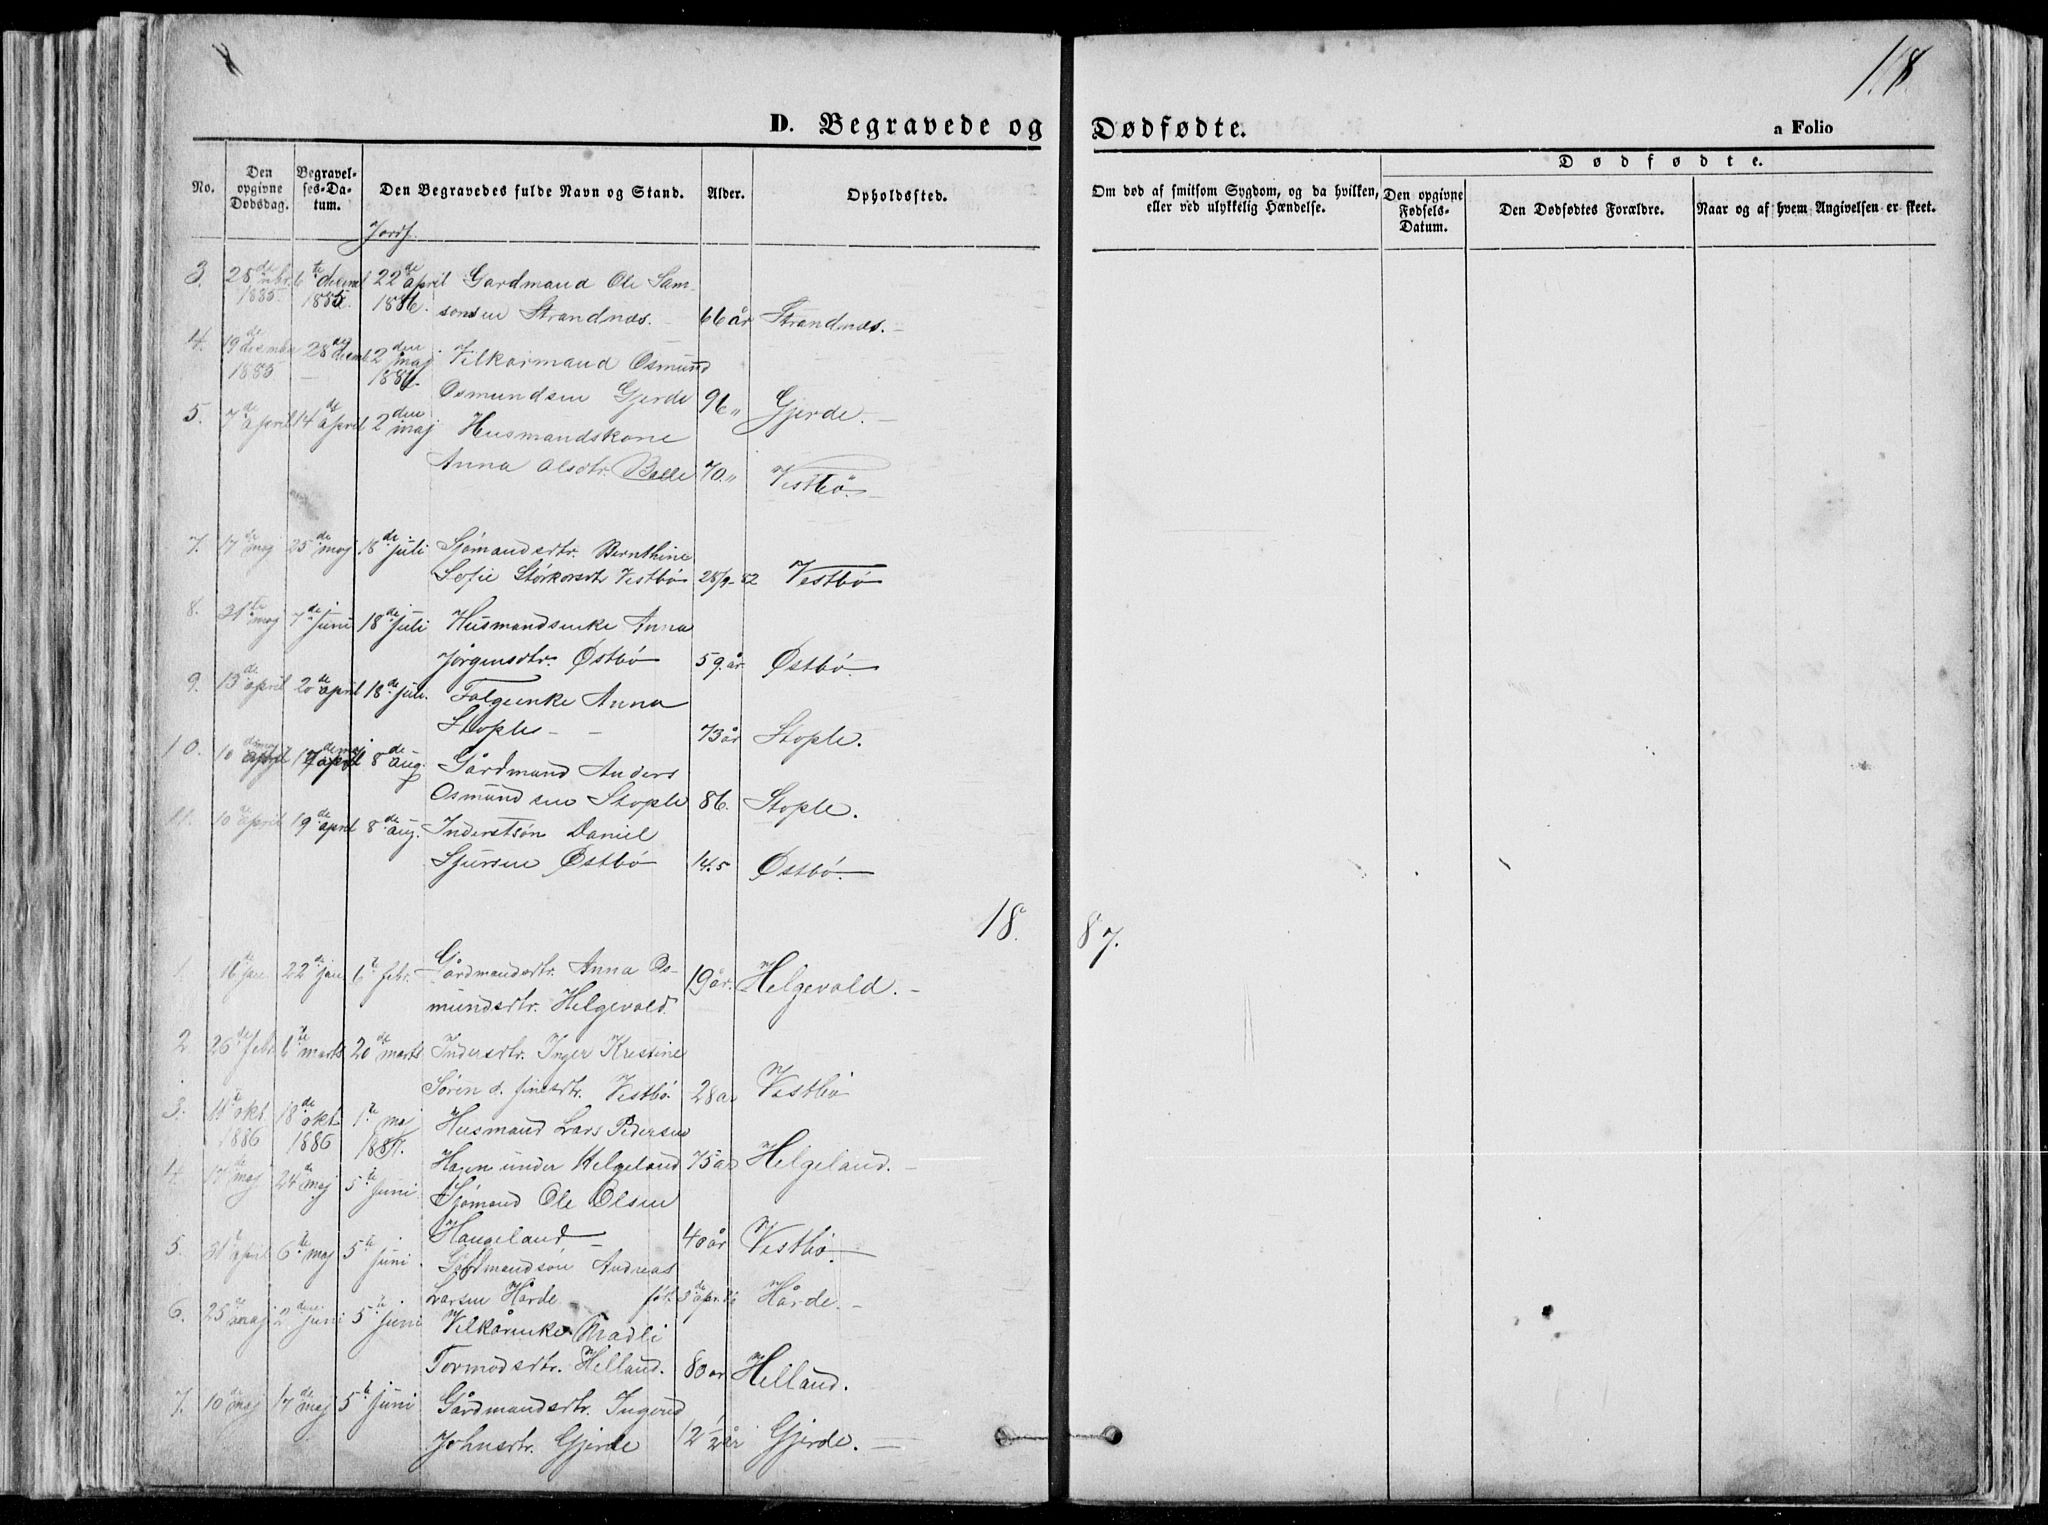 118
D. Begravede og Dødfødte.
a Folio
No.
Den opgivne Dødsdag.
Begravelses-Datum.
Den Begravedes fulde Navn og Stand.
Alder.
Opholdssted.
Om død af smitsom Sygdom, og da hvilken, eller ved ulykkelig Hændelse.
Dødfødte.
Den opgivne Fødsels-Datum.
Den Dødfødtes Forældre.
Naar og af hvem Angivelsen er skeet.
Jordf.
3. 28de 1885 6te decemb 1885 22de april 1886. Gardmand Ole Sam-
sonsen Strandnæs. 66 år Strandnæs.
4. 19de desember 1885 28de desemb 2den maj 1886. Vilkarmand Osmund
Osmundsen Gjerde 96 " Gjerde.
5. 7de april 14de april 2den maj Husmandskone
Anna Olsdtr. 70 " Vestbö.
7. 17de maj 25de maj 18de juli Sjømandsdtr. Bernthine
Sofie Vestbö 28/9-82 Vestbö
8. 31te maj 7de juni 18de juli Husmandsenke Anna
Jörgensdtr. Østbö 59 år Østbö.
9. 13de april 20de april 18de juli. Folgeenke Anna
Stople 73 år Stople.
10. 10de maj 17de maj 8de aug. Gårdmand Anders
Osmundsen Stople 86. Stople.
11. 10de april 19de april 8de aug. Inderstsön Daniel
Sjursen Østbö 14.5 Østbö.
1887.
1. 16de jan 22de jan 6te febr. Gårdmandsdtr. Anna Os-
mundsdtr. Helgevold. 19 år. Helgevold.
2. 26de febr. 6te marts 20de marts Indersdtr. Inger Kristine
Sören Vestbö. 28 år Vestbö
3. 11te okt 1886 18de okt 1886 1te maj 1887. Husmand Lars Pedersen
Hagen under Helgeland 75 år Helgeland.
4. 17de maj 24de maj 5te juni Sjömand Ole Olsen
Haugeland 40 år Vestbö.
5. april 6te maj 5te juni Gårdmandsön Andreas
Larsen Hårde föt. 5de apr. Hårde.
6. 25de maj 2den juni 5te juni Vilkårenke Madli
Tormodsdtr. Helland. 80 år Helland.
7. 10de maj 17de maj 5te juni Gårdmandsdtr. Ingerid
Johnsdtr. Gjerde 12 1/2 år Gjerde.